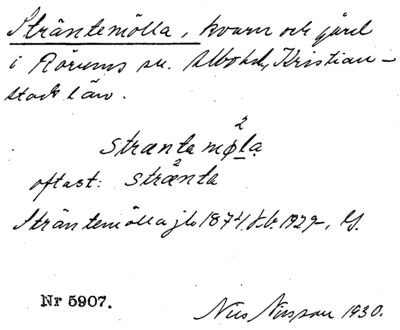 Sträntemölla, kvarn och gård
i Rörums sn. Albo hd, Kristian-
stads län.
2
strænta møla
oftast: strænta
2
Sträntemölla jb 1874,
Nr 5907.
Nils Nilsson 1930.